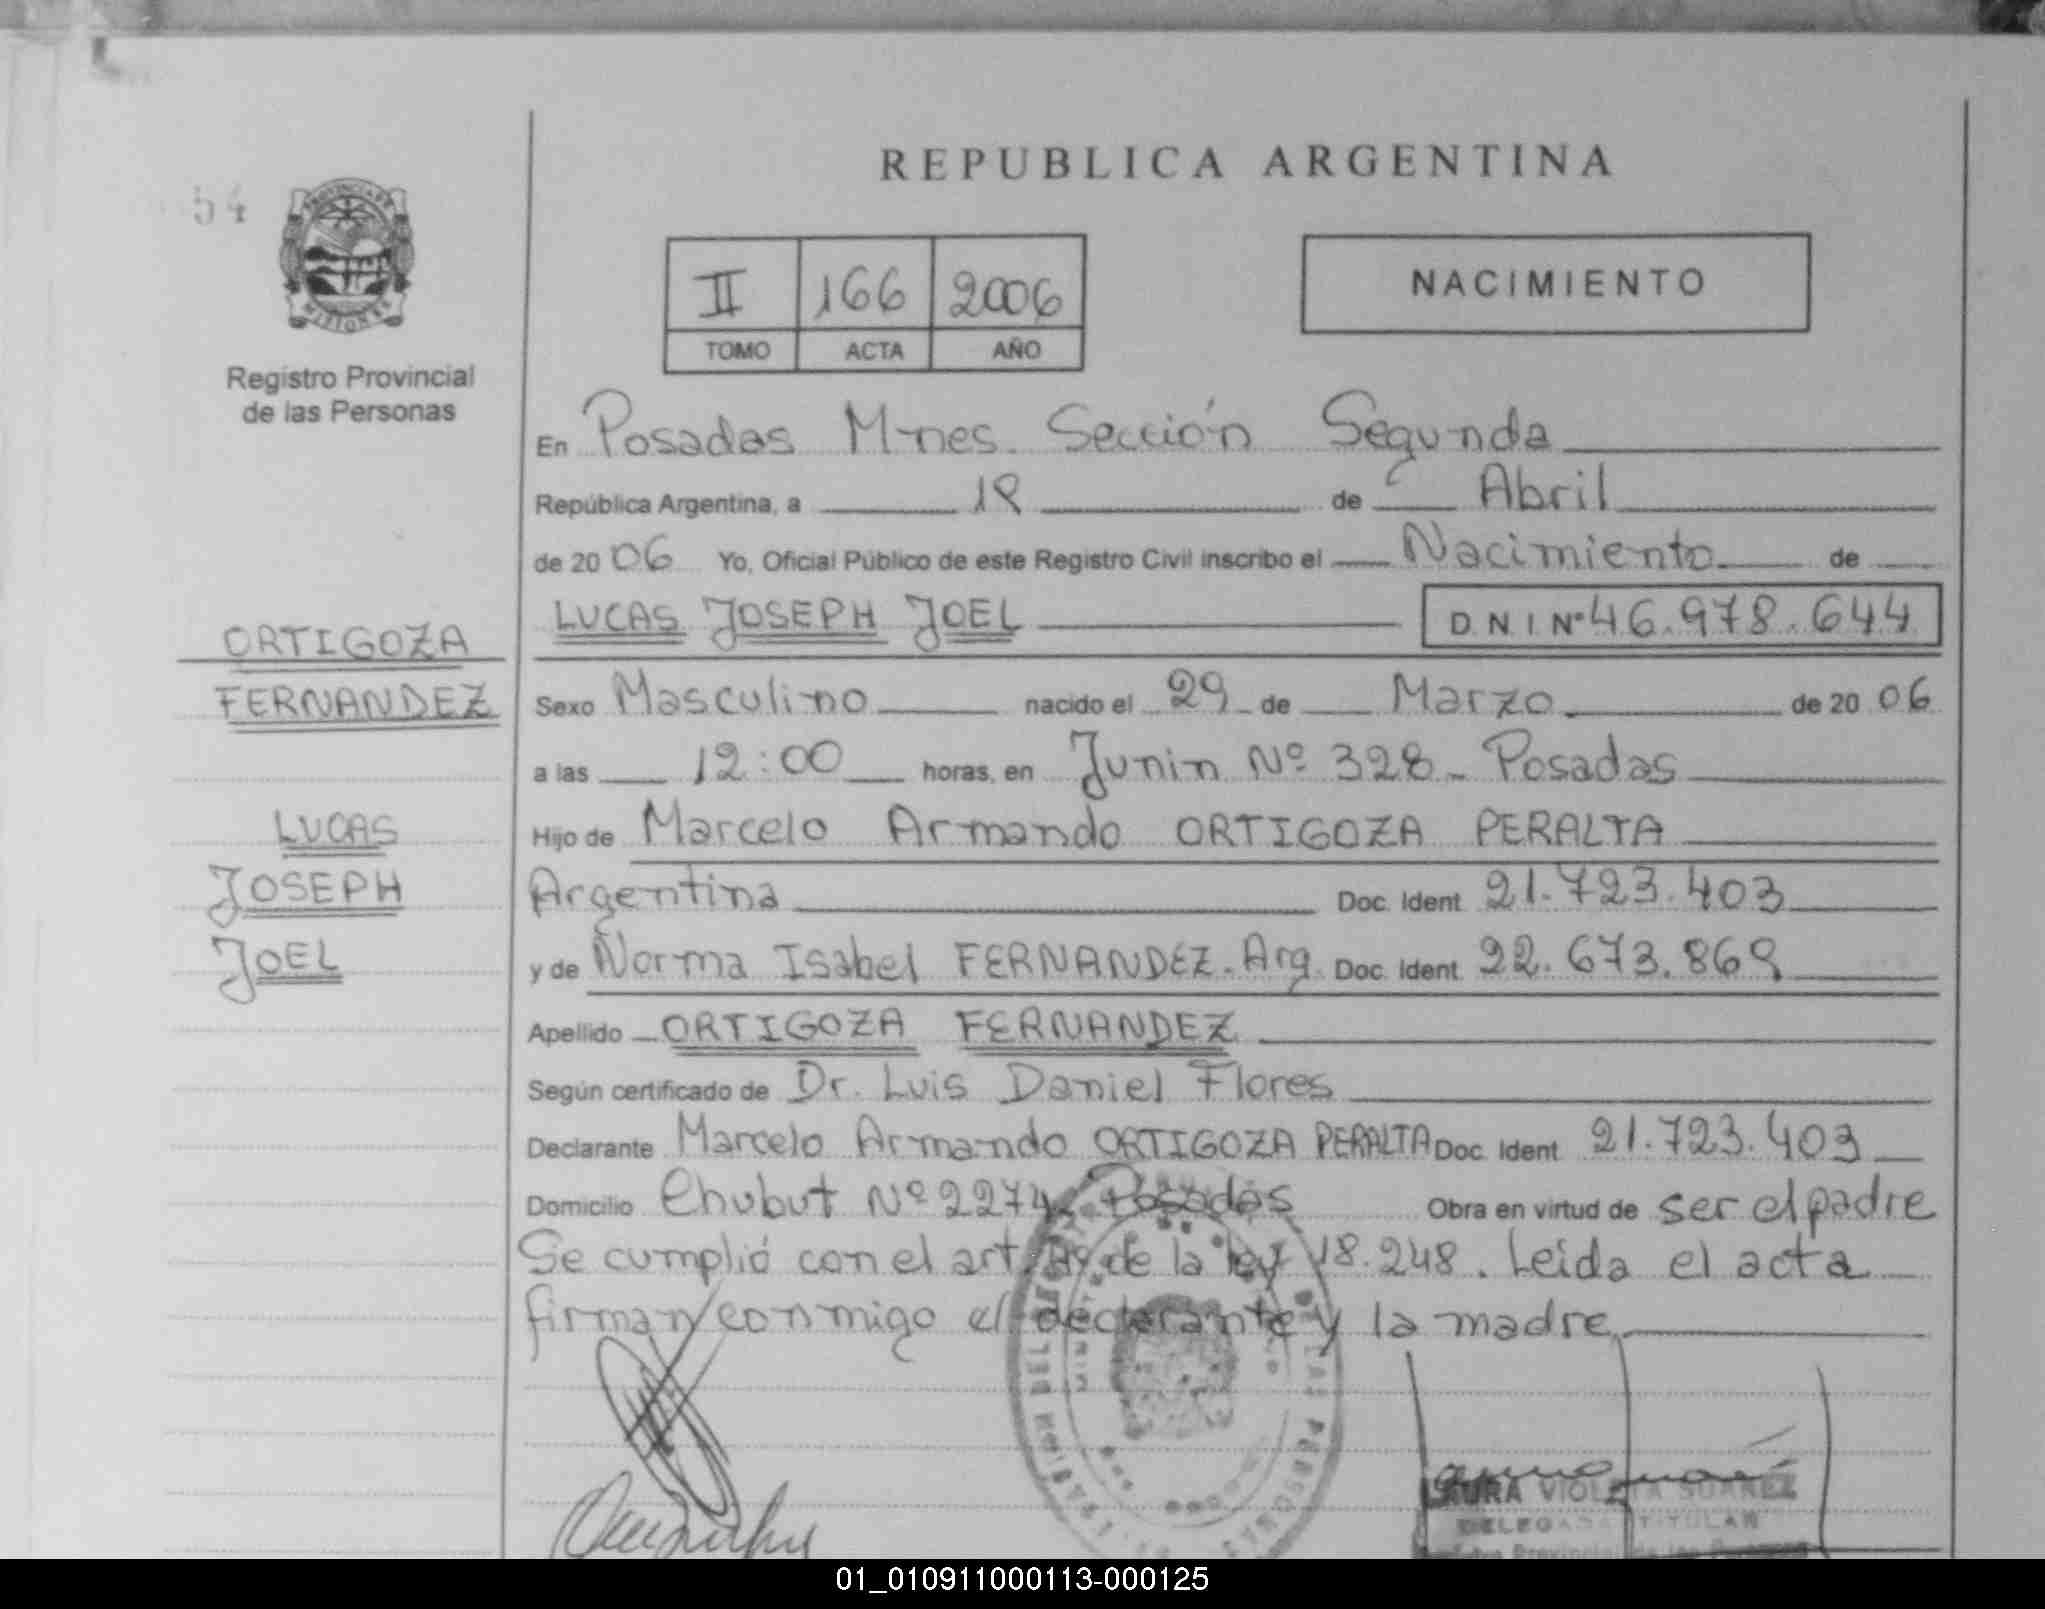 REPUBLICA ARGENTINA
54
PROVINCIA DE
MISIONES
Registro Provincial
de las Personas
II 166 2006
TOMO ACTA AÑO
NACIMIENTO
En Posadas M-nes. Sección Segunda
República Argentina, a 18 de Abril
de 2006 Yo, Oficial Público de este Registro Civil inscribo el Nacimiento de
LUCAS JOSEPH JOEL D.N.I Nº 46.978.644
ORTIGOZA
FERNANDEZ
Sexo Masculino nacido el 29 de Marzo de 2006
a las 12:00 horas, en Junin Nº 328 - Posadas
LUCAS
JOSEPH
JOEL
Hijo de Marcelo Armando ORTIGOZA PERALTA
Argentina Doc. Ident 21.723.403
y de Norma Isabel FERNANDEZ. Arg. Doc. Ident 22.673.869
Apellido ORTIGOZA FERNANDEZ
Según certificado de Dr. Luis Daniel Flores
Declarante Marcelo Armando ORTIGOZA PERALTA Doc. Ident 21.723.403
Domicilio Chubut Nº 2274 Posadas Obra en virtud de ser el padre
Se cumplió con el art. de la ley 18.248. Leida el acta
firman conmigo el declarante y la madre
LAURA VIOLETA SUAREZ
DELEGADA TITULAR
Registro Provincial de las Personas
01_010911000113-000125